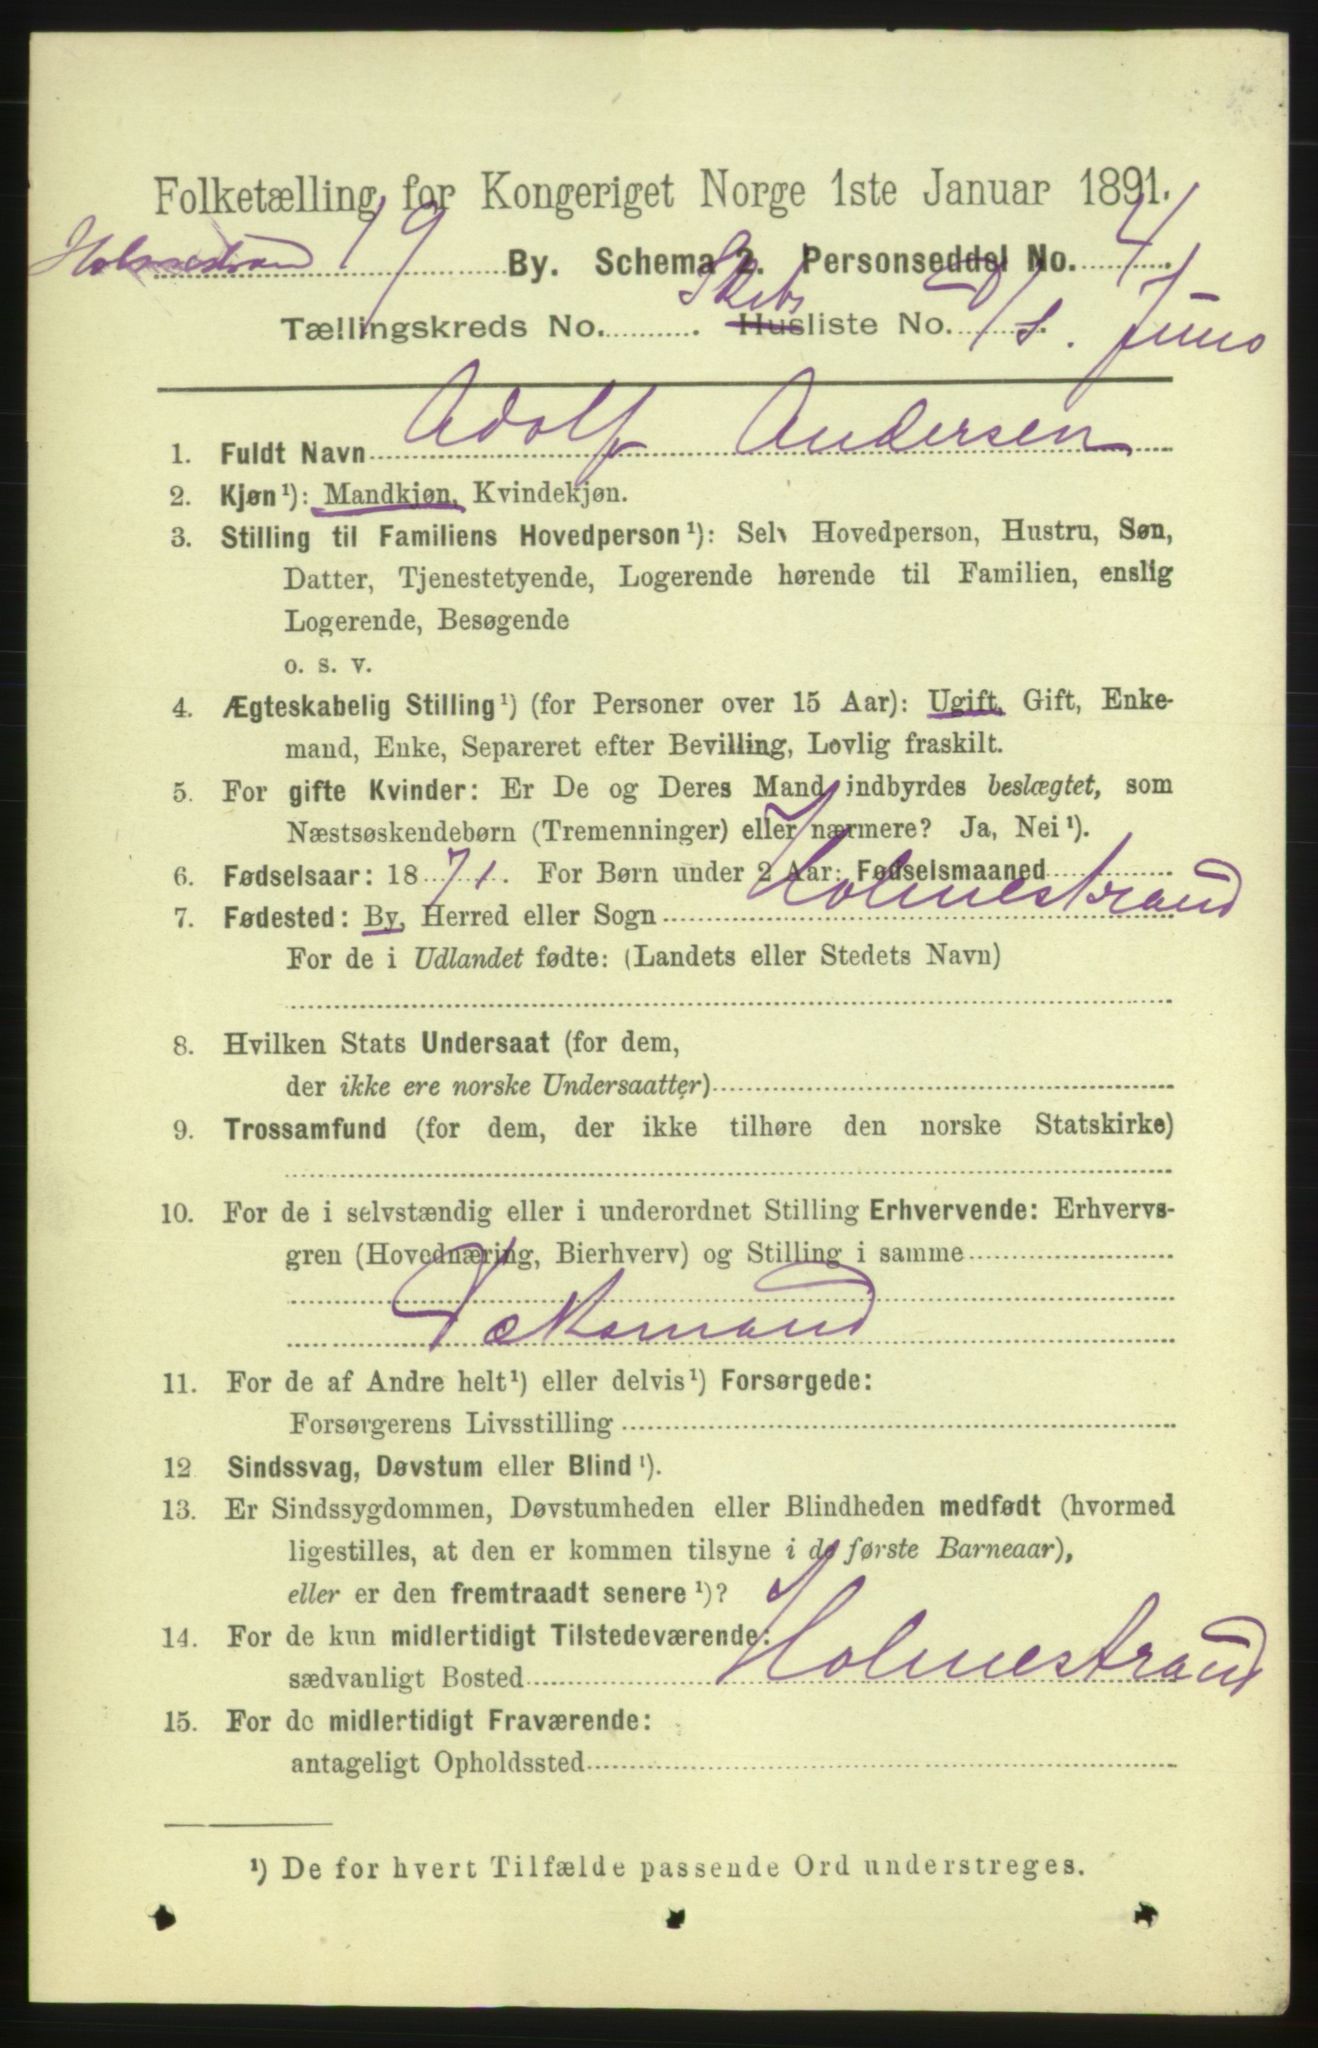 Folketælling for Kongeriget Norge 1ste Januar 1891.
Holmestrand By. Schema 2. Personseddel No. 4
Tællingskreds No. 19. Skibsliste No. S. Juno
1. Fuldt Navn Adolf Andersen
2. Kjøn¹): Mandkjøn, Kvindekjøn.
3. Stilling til Familiens Hovedperson¹): Selv Hovedperson, Hustru, Søn,
Datter, Tjenestetyende, Logerende hørende til Familien, enslig
Logerende, Besøgende
o. s. v.
4. Ægteskabelig Stilling¹) (for Personer over 15 Aar): Ugift, Gift, Enke-
mand, Enke, Separeret efter Bevilling, Lovlig fraskilt.
5. For gifte Kvinder: Er De og Deres Mand indbyrdes beslægtet, som
Næstsøskendebørn (Tremenninger) eller nærmere? Ja, Nei¹).
6. Fødselsaar: 1871. For Børn under 2 Aar: Fødselsmaaned
7. Fødested: By, Herred eller Sogn Holmestrand
For de i Udlandet fødte: (Landets eller Stedets Navn)
8. Hvilken Stats Undersaat (for dem,
der ikke ere norske Undersaatter)
9. Trossamfund (for dem, der ikke tilhøre den norske Statskirke)
10. For de i selvstændig eller i underordnet Stilling Erhvervende: Erhvervs-
gren (Hovednæring, Bierhverv) og Stilling i samme
Dæksmand
11. For de af Andre helt¹) eller delvis¹) Forsørgede:
Forsørgerens Livsstilling
12 Sindssvag, Døvstum eller Blind¹).
13. Er Sindssygdommen, Døvstumheden eller Blindheden medfødt (hvormed
ligestilles, at den er kommen tilsyne i de første Barneaar),
eller er den fremtraadt senere¹)?
14. For de kun midlertidigt Tilstedeværende:
sædvanligt Bosted Holmestrand
15. For de midlertidigt Fraværende:
antageligt Opholdssted
¹) De for hvert Tilfælde passende Ord understreges.